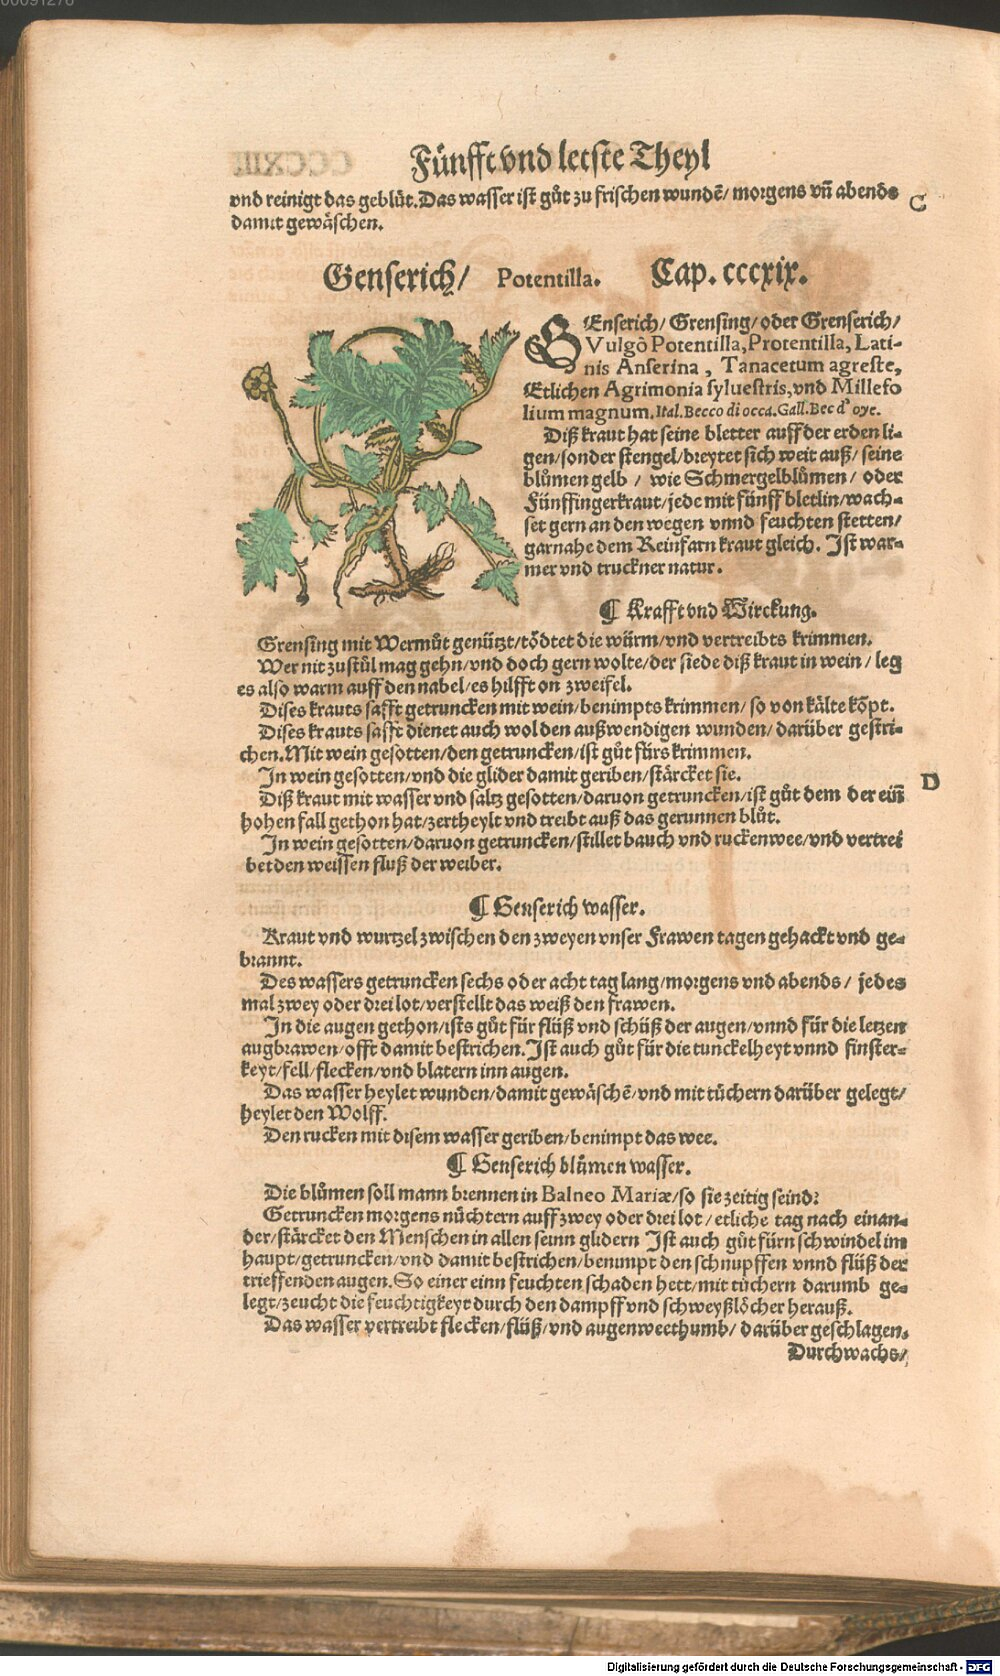 00091276
Fünfft vnd letste Theyl
vnd reinigt das geblüt. Das wasser ist gůt zu frischen wundē/ morgens vñ abends
damit gewäschen.
C
Genserich/ Potentilla. Cap. cccxix.
GEnserich/ Grensing/ oder Grenserich/
Vulgò Potentilla, Protentilla, Lati-
nis Anserina, Tanacetum agreste,
Etlichen Agrimonia syluestris, vnd Millefo
lium magnum. Ital. Becco di occa. Gall. Bec d' oye.
Diß kraut hat seine bletter auff der erden li-
gen/ sonder stengel/ breytet sich weit auß/ seine
blůmen gelb / wie Schmergelblůmen / oder
Fünffingerkraut/ jede mit fünff bletlin/ wach-
set gern an den wegen vnnd feuchten stetten/
gar nahe dem Reinfarn kraut gleich. Ist war-
mer vnd truckner natur.
¶ Krafft vnd Wirckung.
Grensing mit Wermůt genützt/ tödtet die würm/ vnd vertreibts krimmen.
Wer nit zu stůl mag gehn/ vnd doch gern wolte/ der siede diß kraut in wein / leg
es also warm auff den nabel/ es hilfft on zweifel.
Dises krauts safft getruncken mit wein/ benimpts krimmen/ so von kälte kõpt.
Dises krauts safft dienet auch wol den außwendigen wunden/ darüber gestri-
chen. Mit wein gesotten/ den getruncken/ ist gůt fürs krimmen.
In wein gesotten/ vnd die glider damit geriben/ stärcket sie.
D
Diß kraut mit wasser vnd saltz gesotten/ daruon getruncken/ ist gůt dem der eiñ
hohen fall gethon hat/ zertheylt vnd treibt auß das gerunnen blůt.
In wein gesotten/ daruon getruncken/ stillet bauch vnd ruckenwee/ vnd vertrei
bet den weissen fluß der weiber.
¶ Genserich wasser.
Kraut vnd wurtzel zwischen den zweyen vnser Frawen tagen gehackt vnd ge-
brannt.
Des wassers getruncken sechs oder acht tag lang/ morgens vnd abends / jedes
mal zwey oder drei lot/ verstellt das weiß den frawen.
In die augen gethon/ ists gůt für flüß vnd schüß der augen/ vnnd für die letzen
augbrawen/ offt damit bestrichen. Ist auch gůt für die tunckelheyt vnnd finster-
keyt/ fell/ flecken/ vnd blatern inn augen.
Das wasser heylet wunden/ damit gewäschē/ vnd mit tüchern darüber gelegt/
heylet den Wolff.
Den rucken mit disem wasser geriben/ benimpt das wee.
¶ Genserich blůmen wasser.
Die blůmen soll mann brennen in Balneo Mariæ/ so sie zeitig seind:
Getruncken morgens nüchtern auff zwey oder drei lot / etliche tag nach einan-
der/ stärcket den Menschen in allen seinn glidern Ist auch gůt fürn schwindel im
haupt/ getruncken/ vnd damit bestrichen/ benimpt den schnupffen vnnd flüß der
trieffenden augen. So einer einn feuchten schaden hett/ mit tüchern darumb ge-
legt/ zeucht die feuchtigkeyt durch den dampff vnd schweyßlöcher herauß.
Das wasser vertreibt flecken/ flüß/ vnd augenweethumb/ darüber geschlagen.
Durchwachs/
Digitalisierung gefördert durch die Deutsche Forschungsgemeinschaft - DFG